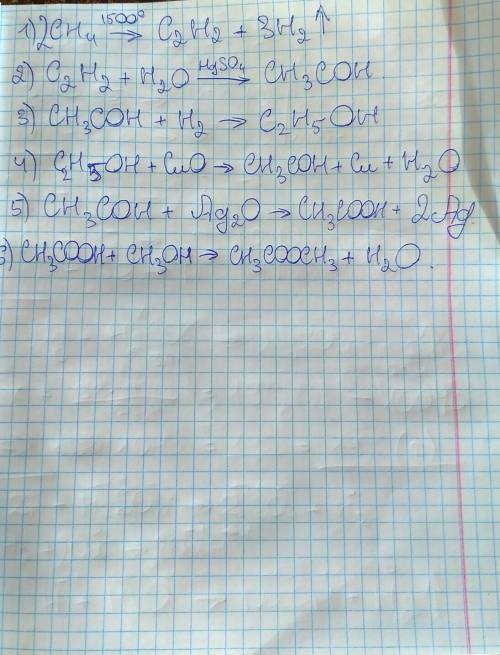 1) 2CH₄ 1500° → C₂H₂ + 3H₂↑
2) C₂H₂ + H₂O HgSO₄ → CH₃COH
3) CH₃COH + H₂ → C₂H₅OH
4) C₂H₅OH + CuO → CH₃COH + Cu + H₂O
5) CH₃COH + Ag₂O → CH₃COOH + 2Ag.
6) CH₃COOH + CH₃OH → CH₃COOCH₃ + H₂O.